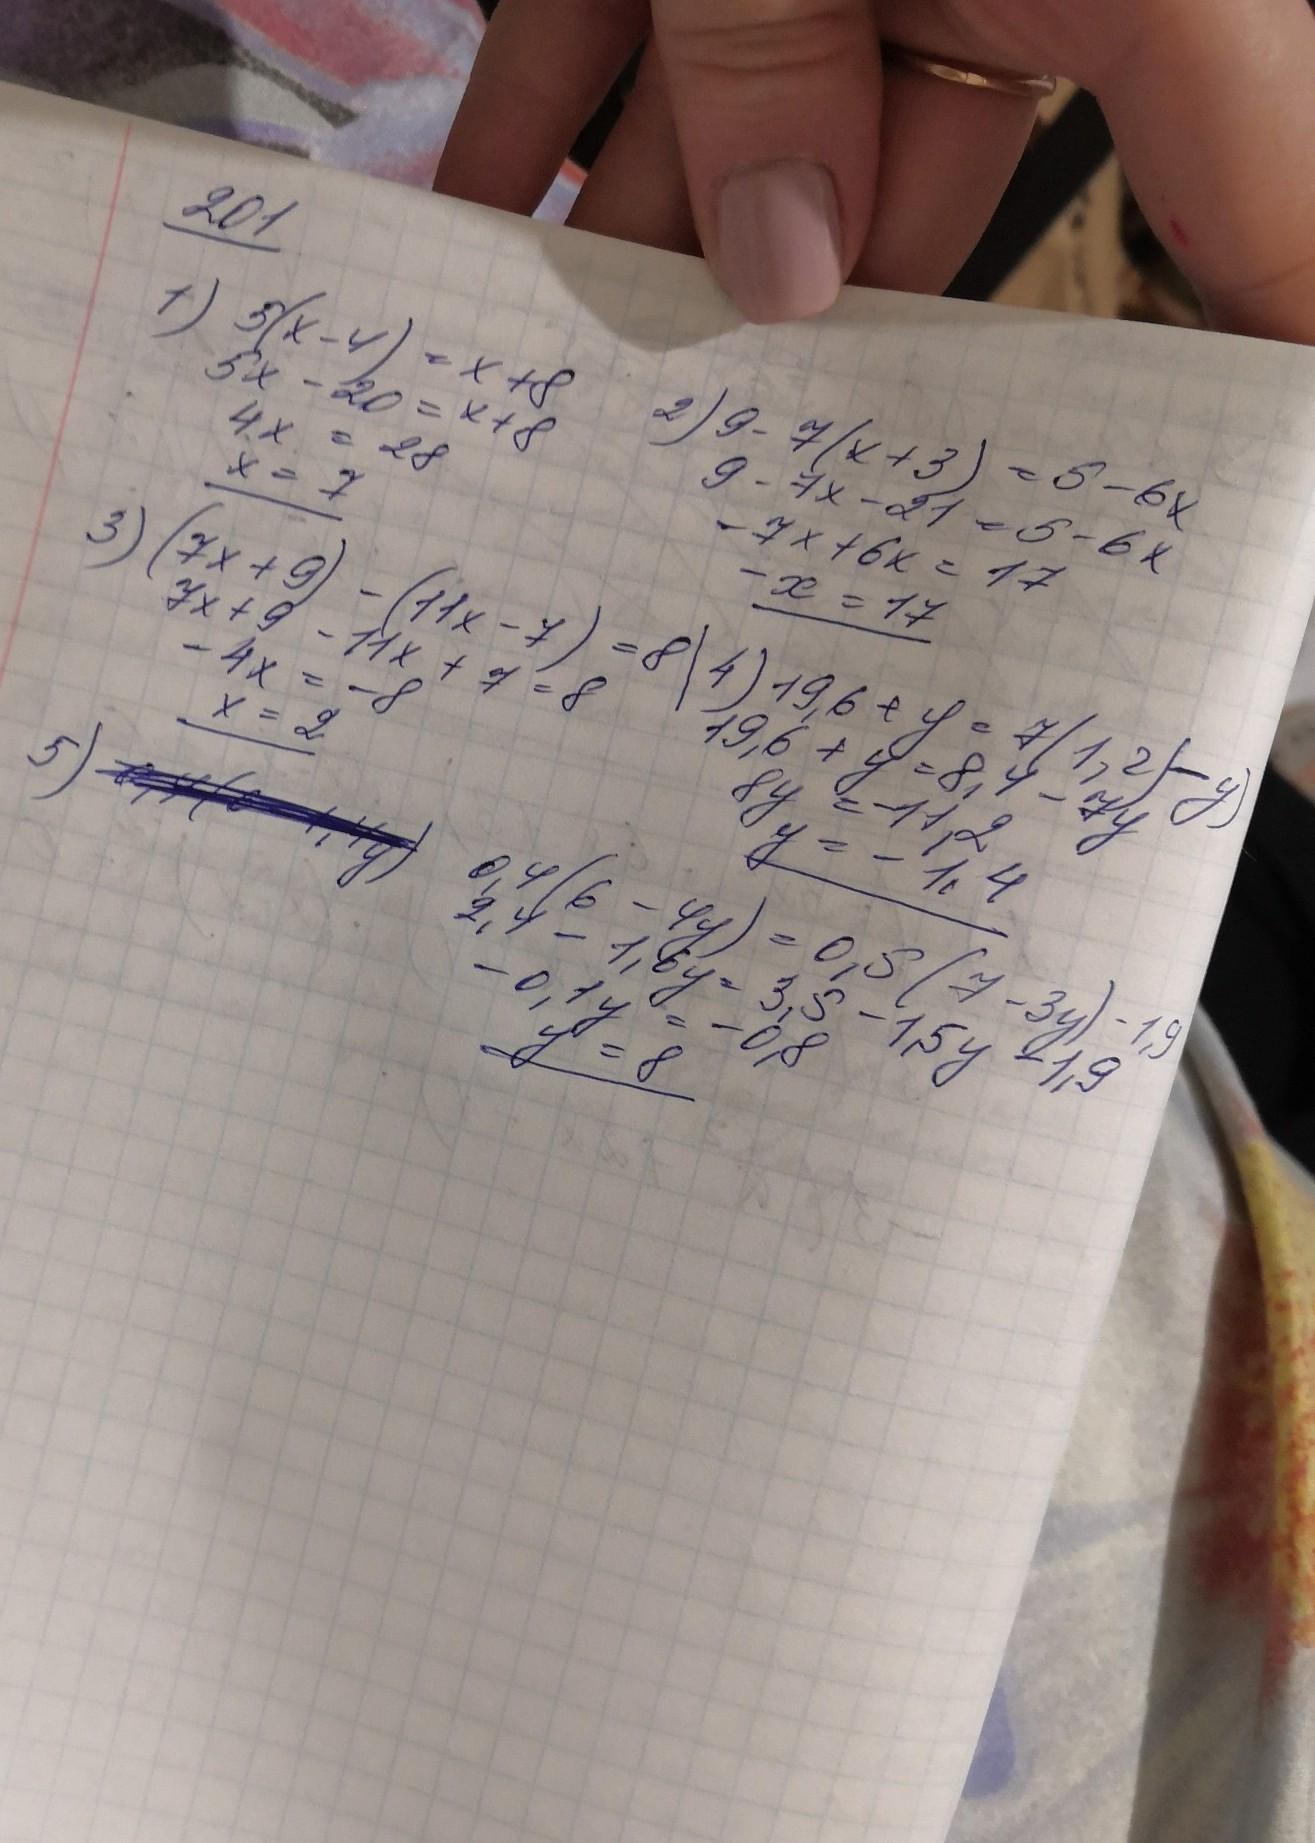 201
1) 5(x-4) = x+8
5x - 20 = x+8
4x = 28
x = 7
2) 9 - 7(x+3) = 5-6x
9 - 7x - 21 = 5 - 6x
-7x+6x = 17
-x = 17
3) (7x+9) - (11x-7) = 8
7x+9 - 11x + 7 = 8
-4x = -8
x = 2
4) 19,6 + y = 7(1,2 - y)
19,6 + y = 8,4 - 7y
8y = -11,2
y = -1,4
5)
0,4(6 - 4y) = 0,5(7 - 3y) - 1,9
2,4 - 1,6y = 3,5 - 1,5y - 1,9
-0,1y = -0,8
y = 8